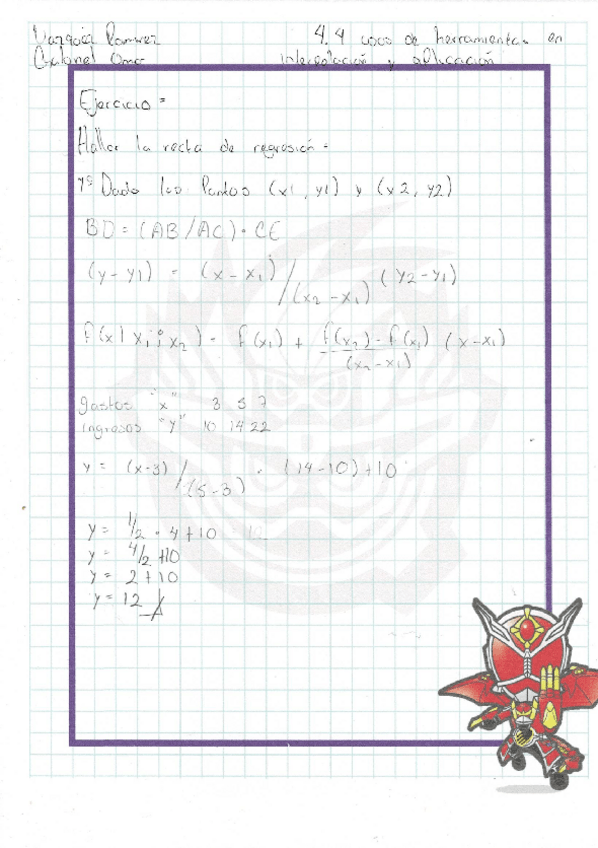 Vazquez Ramirez
Gabriel Omar
4.4 usos de herramientas en
interpolación y aplicación
Ejercicio =
Hallar la recta de regresión =
Dado los Puntos (x1, y1) y (x2, y2)
BD = (AB/AC) · CE
(y-y1) = (x-x1) / (x2-x1) (y2-y1)
f(x|x1;x2) = f(x1) + f(x2)-f(x1) / (x2-x1) (x-x1)
gastos "x" 3 5 7
ingresos "y" 10 14 22
y = (x-3) / (5-3) · (14-10)+10
y = 1/2 · 4 + 10
y = 4/2 +10
y = 2 + 10
y = 12